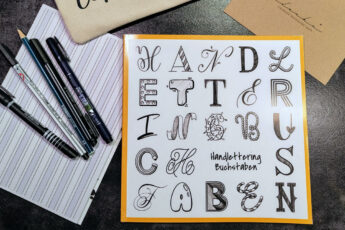 H A N D L
E T T E R
I N G B U
C H S
Handlettering
Buchstaben
T A B E N